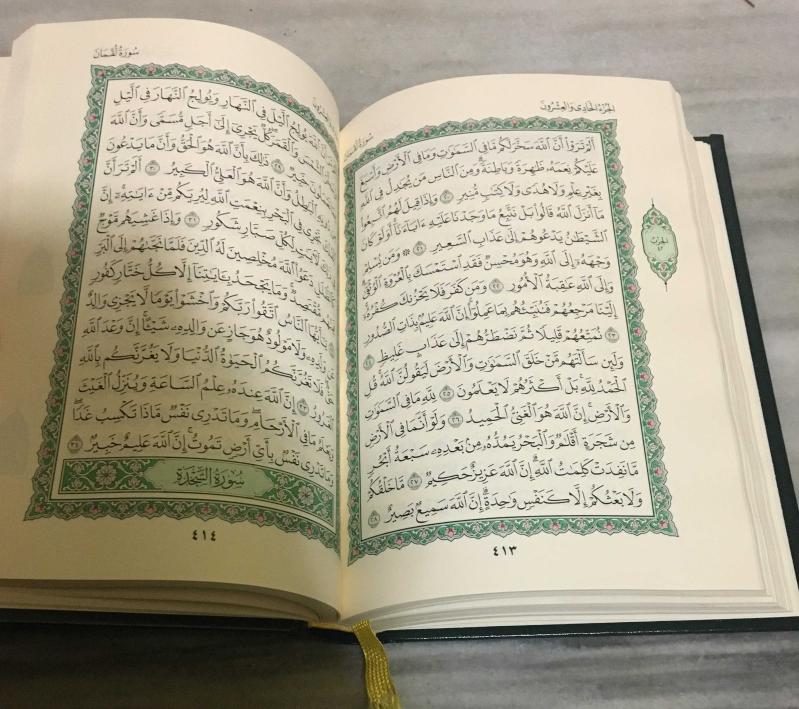 الجزء الحادي والعشرون
سورة لقمان
أَلَمْ تَرَوْا۟ أَنَّ ٱللَّهَ سَخَّرَ لَكُم مَّا فِى ٱلسَّمَٰوَٰتِ وَمَا فِى ٱلْأَرْضِ وَأَسْبَغَ
عَلَيْكُمْ نِعَمَهُۥ ظَٰهِرَةً وَبَاطِنَةً وَمِنَ ٱلنَّاسِ مَن يُجَٰدِلُ فِى ٱللَّهِ
بِغَيْرِ عِلْمٍ وَلَا هُدًى وَلَا كِتَٰبٍ مُّنِيرٍ ٢٠ وَإِذَا قِيلَ لَهُمُ ٱتَّبِعُوا۟
مَآ أَنزَلَ ٱللَّهُ قَالُوا۟ بَلْ نَتَّبِعُ مَا وَجَدْنَا عَلَيْهِ ءَابَآءَنَآ أَوَلَوْ كَانَ
ٱلشَّيْطَٰنُ يَدْعُوهُمْ إِلَىٰ عَذَابِ ٱلسَّعِيرِ ٢١ ۞ وَمَن يُسْلِمْ
وَجْهَهُۥٓ إِلَى ٱللَّهِ وَهُوَ مُحْسِنٌ فَقَدِ ٱسْتَمْسَكَ بِٱلْعُرْوَةِ ٱلْوُثْقَىٰ
وَإِلَى ٱللَّهِ عَٰقِبَةُ ٱلْأُمُورِ ٢٢ وَمَن كَفَرَ فَلَا يَحْزُنكَ كُفْرُهُۥٓ
إِلَيْنَا مَرْجِعُهُمْ فَنُنَبِّئُهُم بِمَا عَمِلُوٓا۟ إِنَّ ٱللَّهَ عَلِيمٌۢ بِذَاتِ ٱلصُّدُورِ
٢٣ نُمَتِّعُهُمْ قَلِيلًا ثُمَّ نَضْطَرُّهُمْ إِلَىٰ عَذَابٍ غَلِيظٍ ٢٤
وَلَئِن سَأَلْتَهُم مَّنْ خَلَقَ ٱلسَّمَٰوَٰتِ وَٱلْأَرْضَ لَيَقُولُنَّ ٱللَّهُ قُلِ
ٱلْحَمْدُ لِلَّهِ بَلْ أَكْثَرُهُمْ لَا يَعْلَمُونَ ٢٥ لِلَّهِ مَا فِى ٱلسَّمَٰوَٰتِ
وَٱلْأَرْضِ إِنَّ ٱللَّهَ هُوَ ٱلْغَنِىُّ ٱلْحَمِيدُ ٢٦ وَلَوْ أَنَّمَا فِى ٱلْأَرْضِ
مِن شَجَرَةٍ أَقْلَٰمٌ وَٱلْبَحْرُ يَمُدُّهُۥ مِنۢ بَعْدِهِۦ سَبْعَةُ أَبْحُرٍ
مَّا نَفِدَتْ كَلِمَٰتُ ٱللَّهِ إِنَّ ٱللَّهَ عَزِيزٌ حَكِيمٌ ٢٧ مَّا خَلْقُكُمْ
وَلَا بَعْثُكُمْ إِلَّا كَنَفْسٍ وَٰحِدَةٍ إِنَّ ٱللَّهَ سَمِيعٌۢ بَصِيرٌ ٢٨
٤١٣
سورة لقمان
ٱللَّهَ يُولِجُ ٱلَّيْلَ فِى ٱلنَّهَارِ وَيُولِجُ ٱلنَّهَارَ فِى ٱلَّيْلِ
ٱلشَّمْسَ وَٱلْقَمَرَ كُلٌّ يَجْرِىٓ إِلَىٰٓ أَجَلٍ مُّسَمًّى وَأَنَّ ٱللَّهَ
خَبِيرٌ ٢٩ ذَٰلِكَ بِأَنَّ ٱللَّهَ هُوَ ٱلْحَقُّ وَأَنَّ مَا يَدْعُونَ
ٱلْبَٰطِلُ وَأَنَّ ٱللَّهَ هُوَ ٱلْعَلِىُّ ٱلْكَبِيرُ ٣٠ أَلَمْ تَرَ أَنَّ
تَجْرِى فِى ٱلْبَحْرِ بِنِعْمَتِ ٱللَّهِ لِيُرِيَكُم مِّنْ ءَايَٰتِهِۦٓ إِنَّ
لَءَايَٰتٍ لِّكُلِّ صَبَّارٍ شَكُورٍ ٣١ وَإِذَا غَشِيَهُم مَّوْجٌ
دَعَوُا۟ ٱللَّهَ مُخْلِصِينَ لَهُ ٱلدِّينَ فَلَمَّا نَجَّىٰهُمْ إِلَى ٱلْبَرِّ
مُّقْتَصِدٌ وَمَا يَجْحَدُ بِـَٔايَٰتِنَآ إِلَّا كُلُّ خَتَّارٍ كَفُورٍ
يَٰٓأَيُّهَا ٱلنَّاسُ ٱتَّقُوا۟ رَبَّكُمْ وَٱخْشَوْا۟ يَوْمًا لَّا يَجْزِى وَالِدٌ
وَلَدِهِۦ وَلَا مَوْلُودٌ هُوَ جَازٍ عَن وَالِدِهِۦ شَيْـًٔا إِنَّ وَعْدَ ٱللَّهِ
حَقٌّ فَلَا تَغُرَّنَّكُمُ ٱلْحَيَوٰةُ ٱلدُّنْيَا وَلَا يَغُرَّنَّكُم بِٱللَّهِ
ٱلْغَرُورُ ٣٣ إِنَّ ٱللَّهَ عِندَهُۥ عِلْمُ ٱلسَّاعَةِ وَيُنَزِّلُ ٱلْغَيْثَ
وَيَعْلَمُ مَا فِى ٱلْأَرْحَامِ وَمَا تَدْرِى نَفْسٌ مَّاذَا تَكْسِبُ غَدًا
وَمَا تَدْرِى نَفْسٌۢ بِأَىِّ أَرْضٍ تَمُوتُ إِنَّ ٱللَّهَ عَلِيمٌ خَبِيرٌۢ ٣٤
سورة السجدة
٤١٤